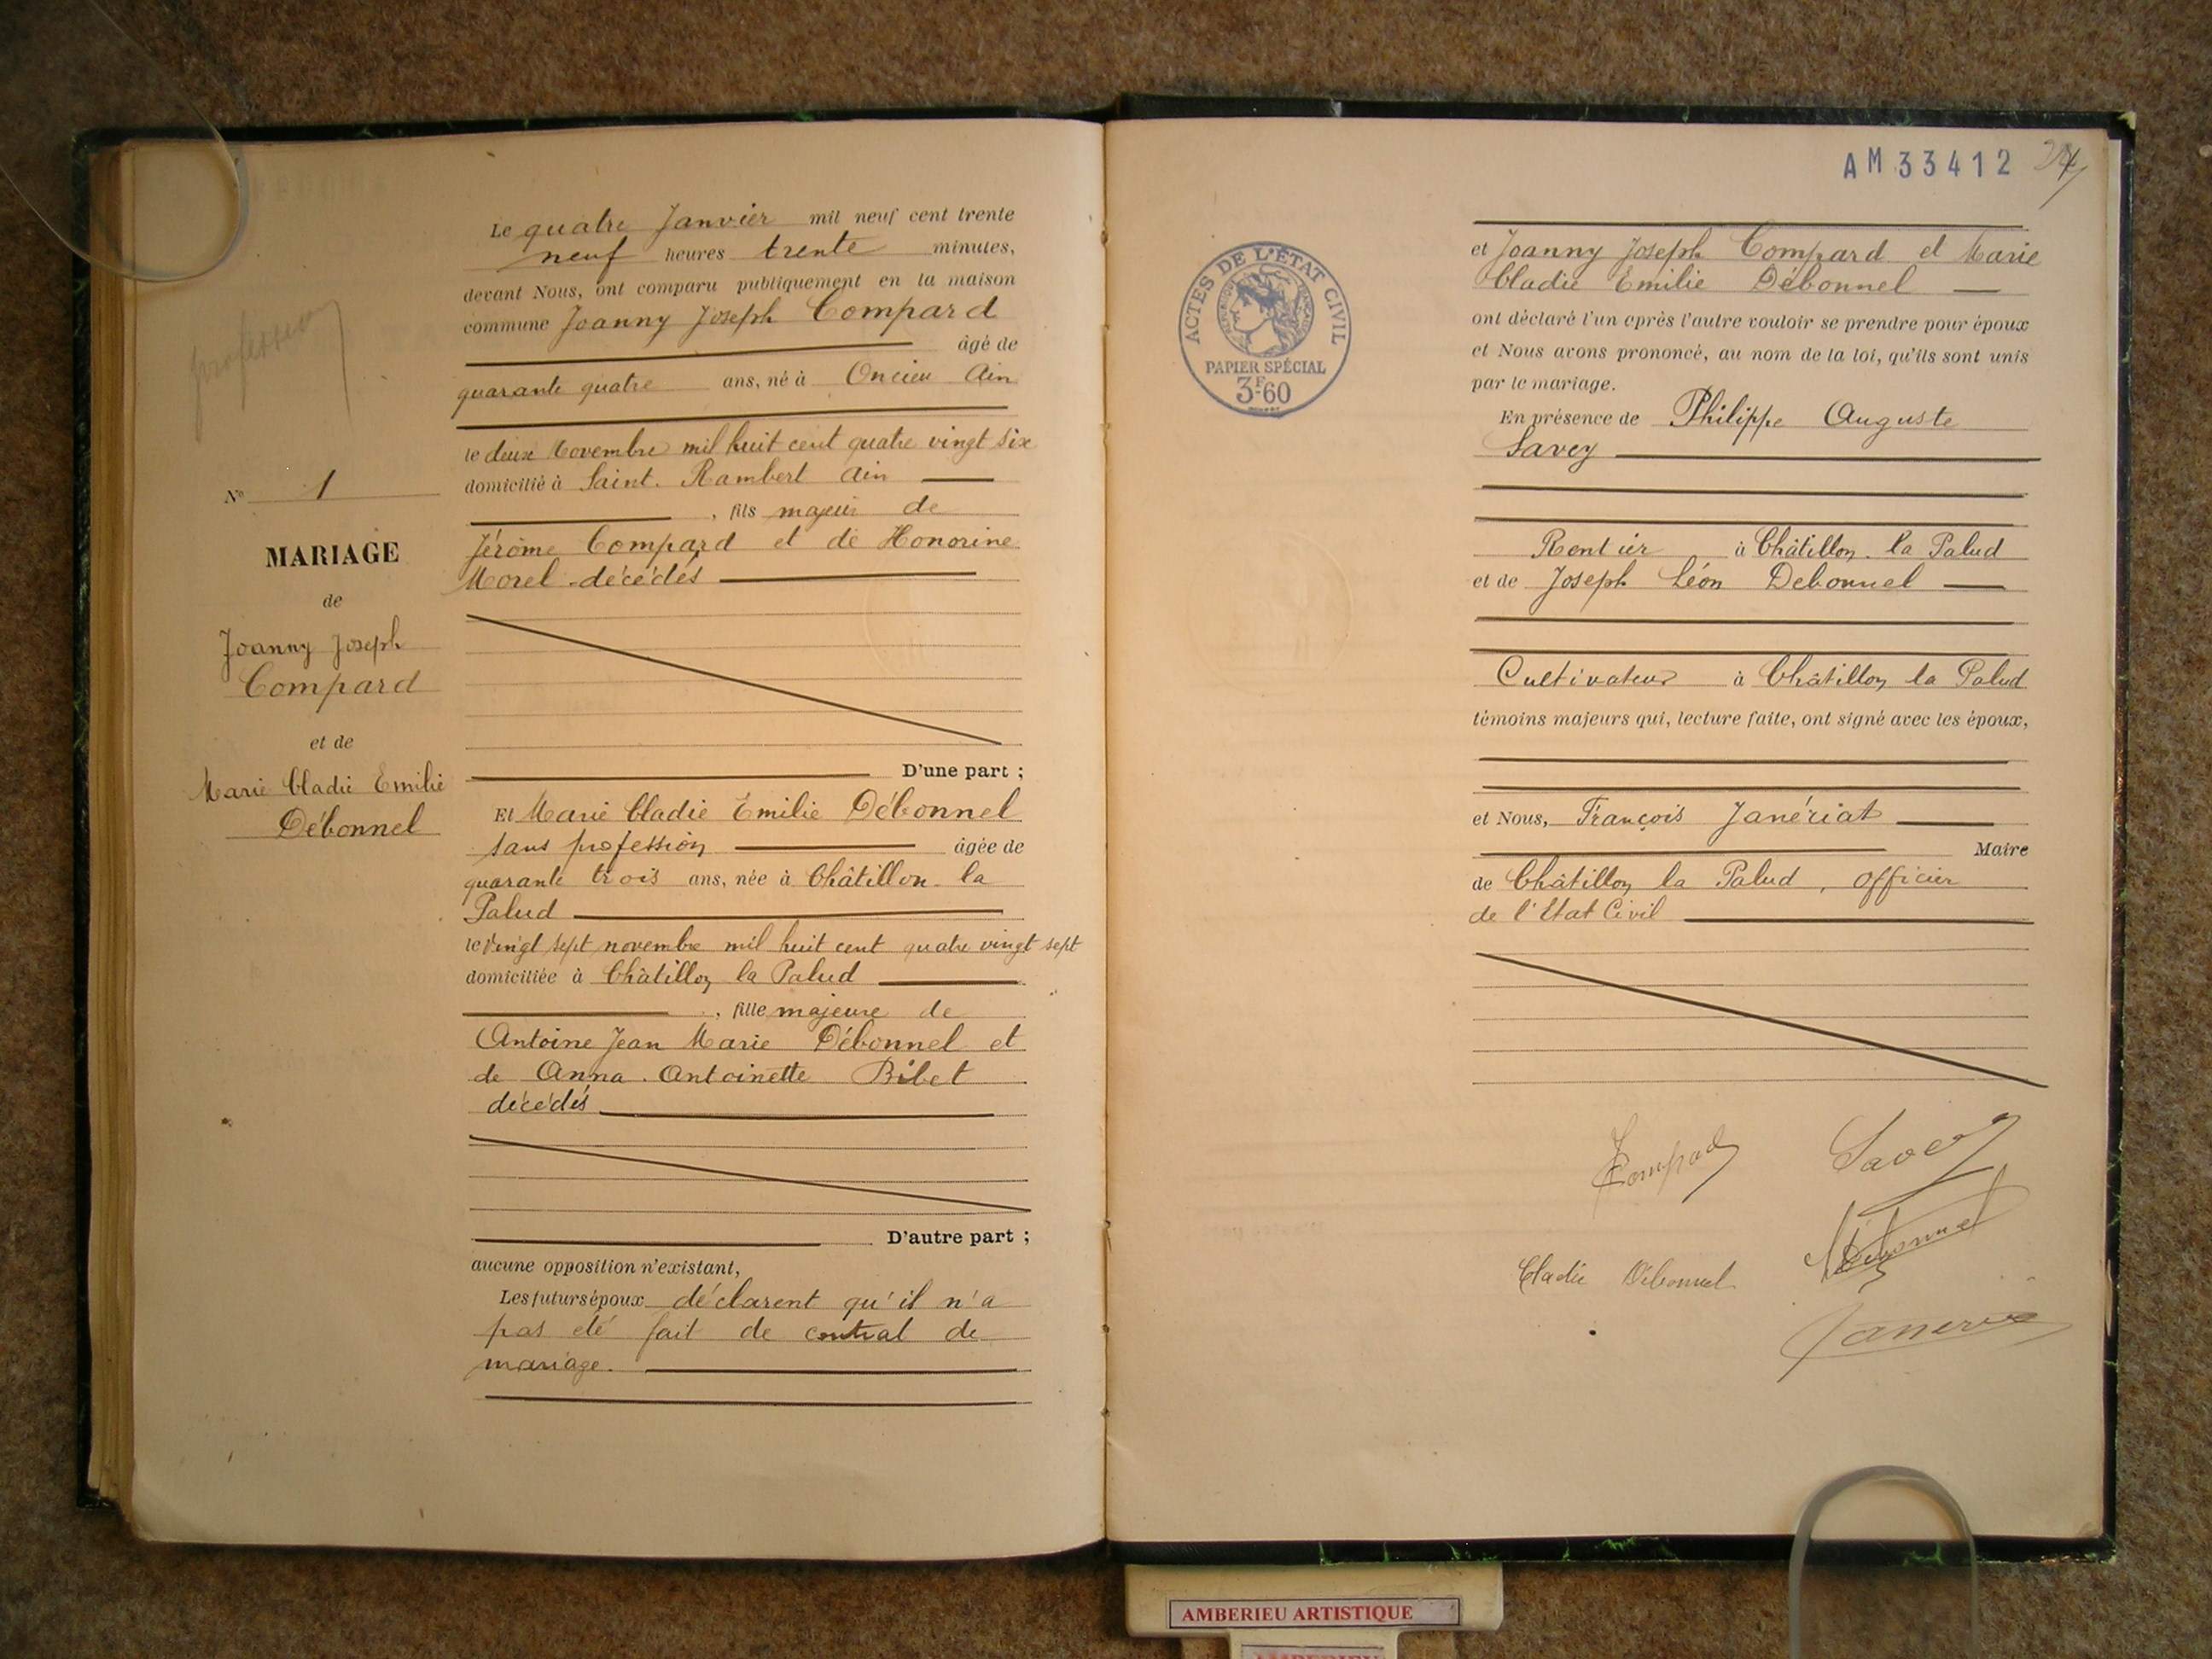 profession
N° 1
MARIAGE
de
Joanny Joseph
Compard
et de
Marie Cladie Emilie
Débonnel
Le quatre Janvier mil neuf cent trente
neuf heures trente minutes,
devant Nous, ont comparu publiquement en la maison
commune Joanny Joseph Compard
âgé de
quarante quatre ans, né à Oncieu Ain
le deux Novembre mil huit cent quatre vingt six
domicilié à Saint. Rambert Ain
, fils majeur de
Jérôme Compard et de Honorine
Morel décédés
D'une part ;
Et Marie Cladie Emilie Débonnel
sans profession âgée de
quarante trois ans, née à Châtillon la
Palud
le vingt sept novembre mil huit cent quatre vingt sept
domiciliée à Châtillon la Palud
, fille majeure de
Antoine Jean Marie Débonnel et
de Anna Antoinette Bibet
décédés
D'autre part ;
aucune opposition n'existant,
Les futurs époux déclarent qu'il n'a
pas été fait de contrat de
mariage.
AM 33412
ACTES DE L'ÉTAT CIVIL
PAPIER SPÉCIAL
3F60
et Joanny Joseph Compard et Marie
Cladie Emilie Débonnel
ont déclaré l'un après l'autre vouloir se prendre pour époux
et Nous avons prononcé, au nom de la loi, qu'ils sont unis
par le mariage.
En présence de Philippe Auguste
Savey
Rentier à Châtillon la Palud
et de Joseph Léon Debonnel
Cultivateur à Châtillon la Palud
témoins majeurs qui, lecture faite, ont signé avec les époux,
et Nous, François Janériat
Maire
de Châtillon la Palud, officier
de l'Etat Civil
Compard
Savey
Debonnel
Cladie Débonnel
Janeriat
AMBERIEU ARTISTIQUE
AMBERIEU